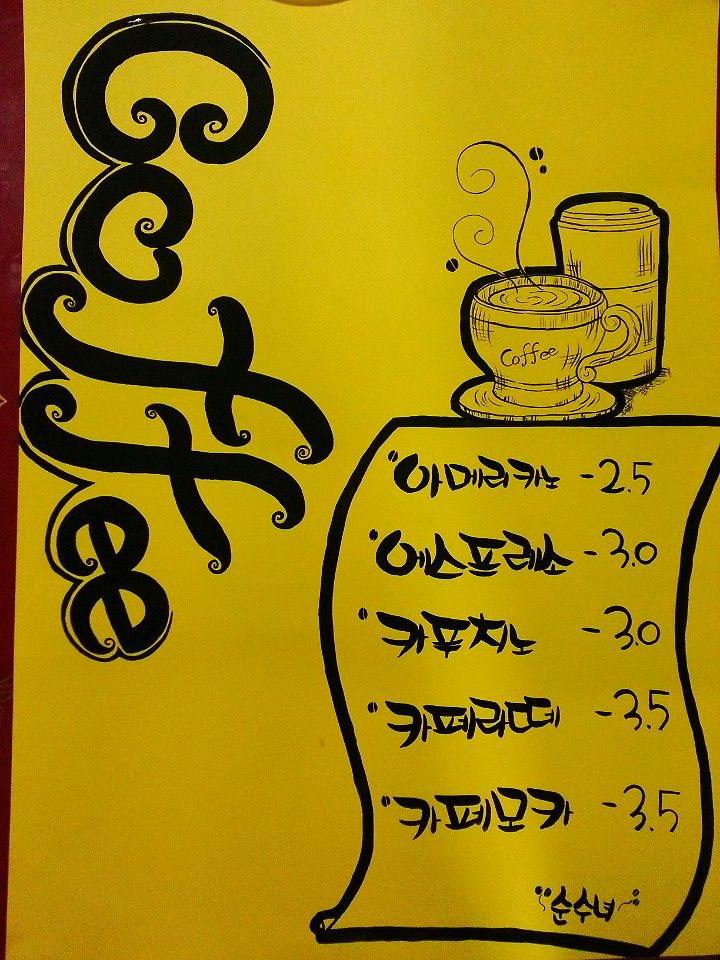 Coffee
Coffee
아메리카노 -2.5
에스프레소 -3.0
카푸치노 -3.0
카페라떼 -3.5
카페모카 -3.5
순수녀